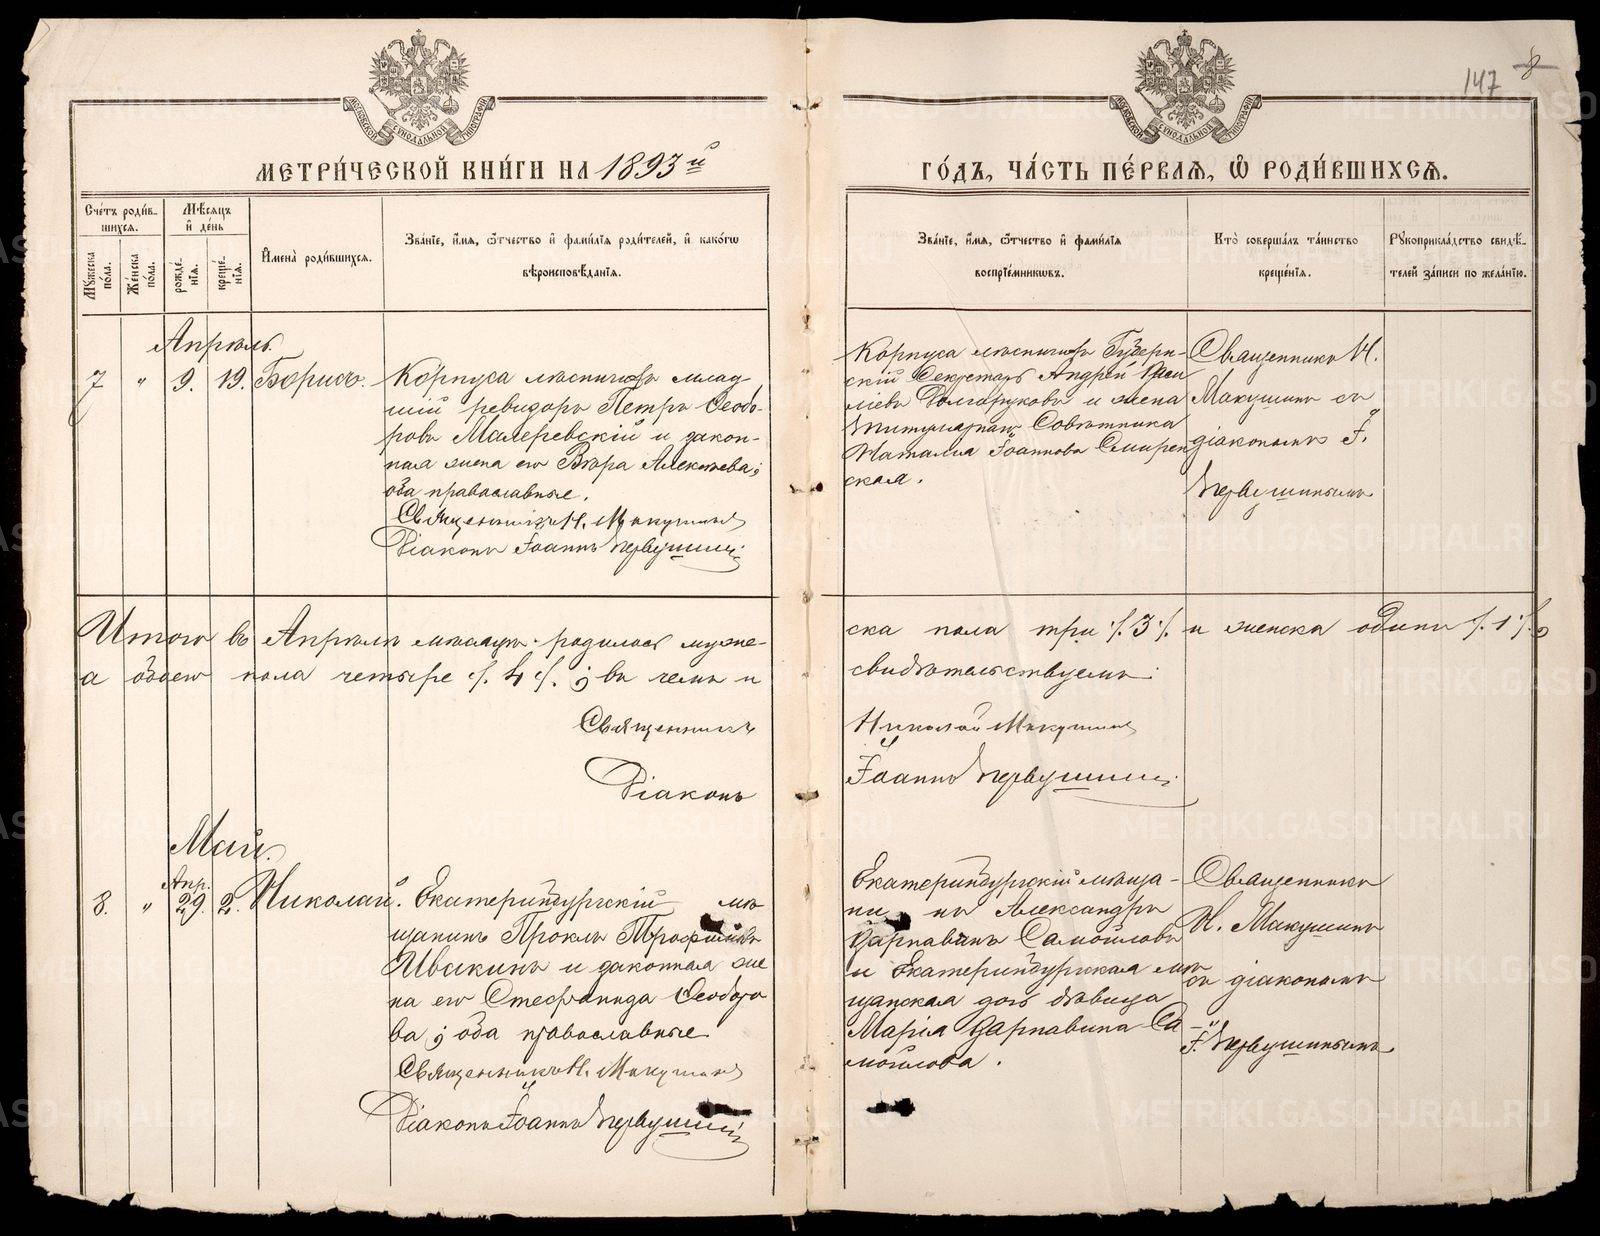 147 8
МЕТРИ́ЧЕСКОЙ КНИ́ГИ НА 1893й
ГО́ДЪ, ЧА́СТЬ ПЕ́РВАЯ, Ѡ҆ РОДИ́ВШИХСЯ.
Сче́тъ роди́в-
шихся.
Мꙋ́жеска по́ла.
Же́нска по́ла.
Мѣ́сяцъ и҆ де́нь
рожде́-нїя.
креще́-нїя.
И҆мена̀ роди́вшихся.
Зва́нїе, и҆́мя, ѻ҆́тчество и҆ фами́лїя роди́телей, и҆ како́гѡ
вѣроисповѣ́данїя.
Зва́нїе, и҆́мя, ѻ҆́тчество и҆ фами́лїя
воспрїе́мникѡвъ.
Кто̀ соверша́лъ та́инство
креще́нїя.
Рꙋкоприкла́дство свидѣ́-
телей за́писи по жела́нїю.
Апрѣль
7 " 9. 19. Борисъ.
Корпуса лѣсничихъ млад-
шій ревизоръ Петръ Ѳеодо-
ровъ Малеревскій и закон-
ная жена его Вѣра Алексѣева;
оба православные.
Священникъ Н. Макушинъ
Діаконъ Іоаннъ Первушинъ
Корпуса лѣсничихъ Губерн-
скій Секретарь Андрей Васи
ліевъ Долгоруковъ и жена
Титулярнаго Совѣтника
Наталія Іоаннова Смирен
ская.
Священникъ Н.
Макушинъ съ
діакономъ І.
Первушинымъ
Итого въ Апрѣлѣ мѣсяцѣ родилось муже-
ска пола три ./.3./. и женска одинъ ./.1./.,
а обоего пола четыре ./.4./.; въ чемъ и
свидѣтельствуемъ:
Священникъ
Николай Макушинъ
Діаконъ
Іоаннъ Первушинъ
Май.
8. " Апр. 29. 2. Николай.
Екатеринбургскій мѣ
щанинъ Проклъ Трофимовъ
Ивакинъ и законная же
на его Стефанида Ѳеодоро
ва; оба православные.
Священникъ Н. Макушинъ
Діаконъ Іоаннъ Первушинъ
Екатеринбургскій мѣща-
нинъ Александръ
Варнавинъ Самойловъ
и Екатеринбургская мѣ
щанская дочь дѣвица
Марія Варнавина Са-
мойлова.
Священникъ
Н. Макушинъ
съ діакономъ
І. Первушинымъ
METRIKI.GASO-URAL.RU